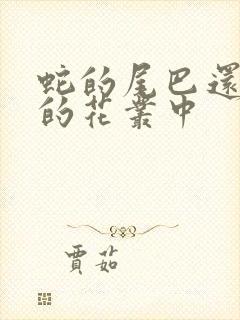 蛇的尾巴還
的花叢中
賈茹